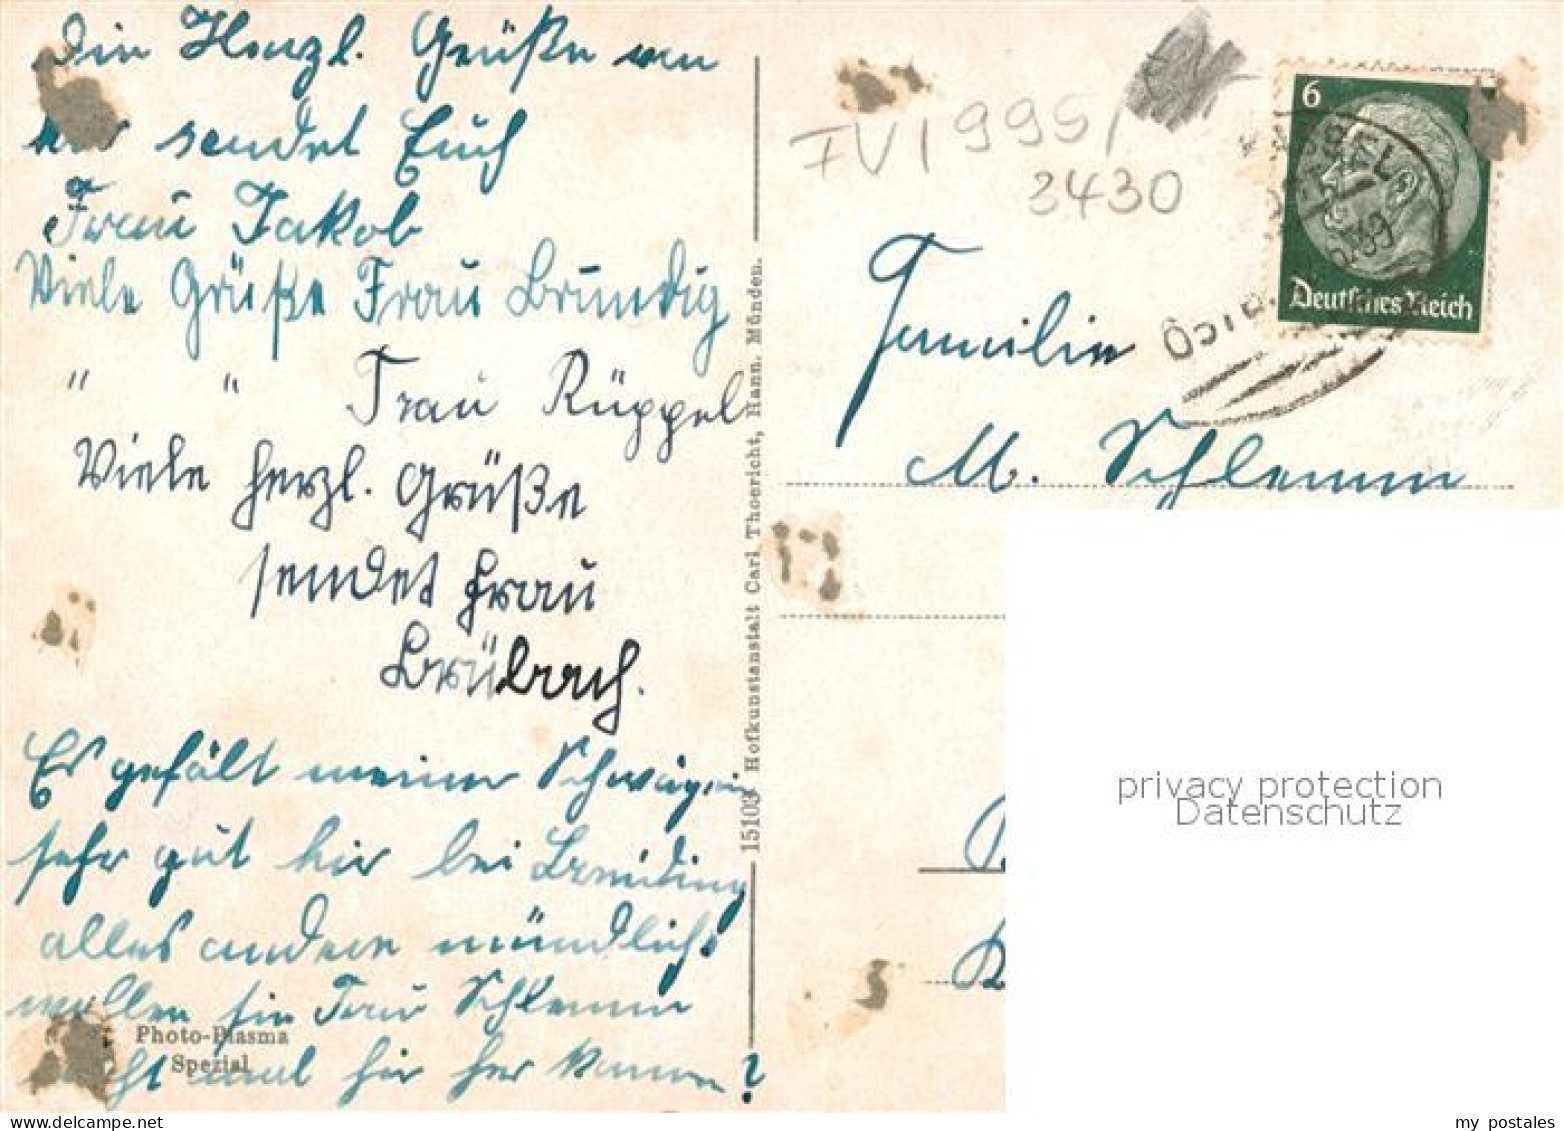 Die Herzl. Grüße von
hir sendet Euch
Frau Jakob
Viele Grüße Frau Brundig
" " Frau Rüppel
Viele herzl. Grüße
sendet Frau
Brübach.
Es gefält meiner Schwägerin
sehr gut hir bei
alles andere mündlich
wollen sie Frau Schlemm
mal hir her kommen?
Photo-Plasma
Spezial
15103 Hofkunstanstalt Carl Thoericht, Hann. Münden.
FVI 995/
3430
6
Deutsches Reich
Familie
M. Schlemm
privacy protection
Datenschutz
my postales